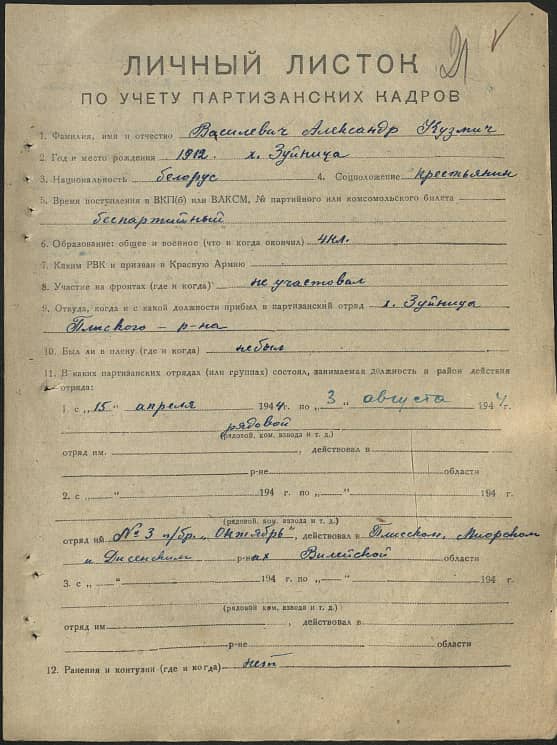 21
ЛИЧНЫЙ ЛИСТОК
ПО УЧЕТУ ПАРТИЗАНСКИХ КАДРОВ
1. Фамилия, имя и отчество Василевич Александр Кузмич
2. Год и место рождения 1912. х. Зуйница
3. Национальность белорус 4. Соцположение крестьянин
5. Время поступления в ВКП(б) или ВЛКСМ, № партийного или комсомольского билета
беспартийный
6. Образование: общее и военное (что и когда окончил) 4кл.
7. Каким РВК и призван в Красную Армию
8. Участие на фронтах (где и когда) не участовал
9. Откуда, когда и с какой должности прибыл в партизанский отряд х. Зуйница
Плиского - р-на
10. Был ли в плену (где и когда) небыл
11. В каких партизанских отрядах (или группах) состоял, занимаемая должность и район действия
отряда:
1. с „15" апреля 1944 г. по „3" августа 1944 г.
рядовой
(рядовой, ком. взвода и т. д.)
отряд им. , действовал в
р-не области
2. с „ " 194 г. по „ " 194 г.
(рядовой, ком. взвода и т. д.)
отряд им № 3 п/бр. „Октябрь", действовал в Плисском, Миорском
и Дисенским р-нах Вилейской области
3. с „ " 194 г. по „ " 194 г.
(рядовой ком. взвода и т. д.)
отряд им , действовал в
р-не области
12. Ранения и контузии (где и когда) нет